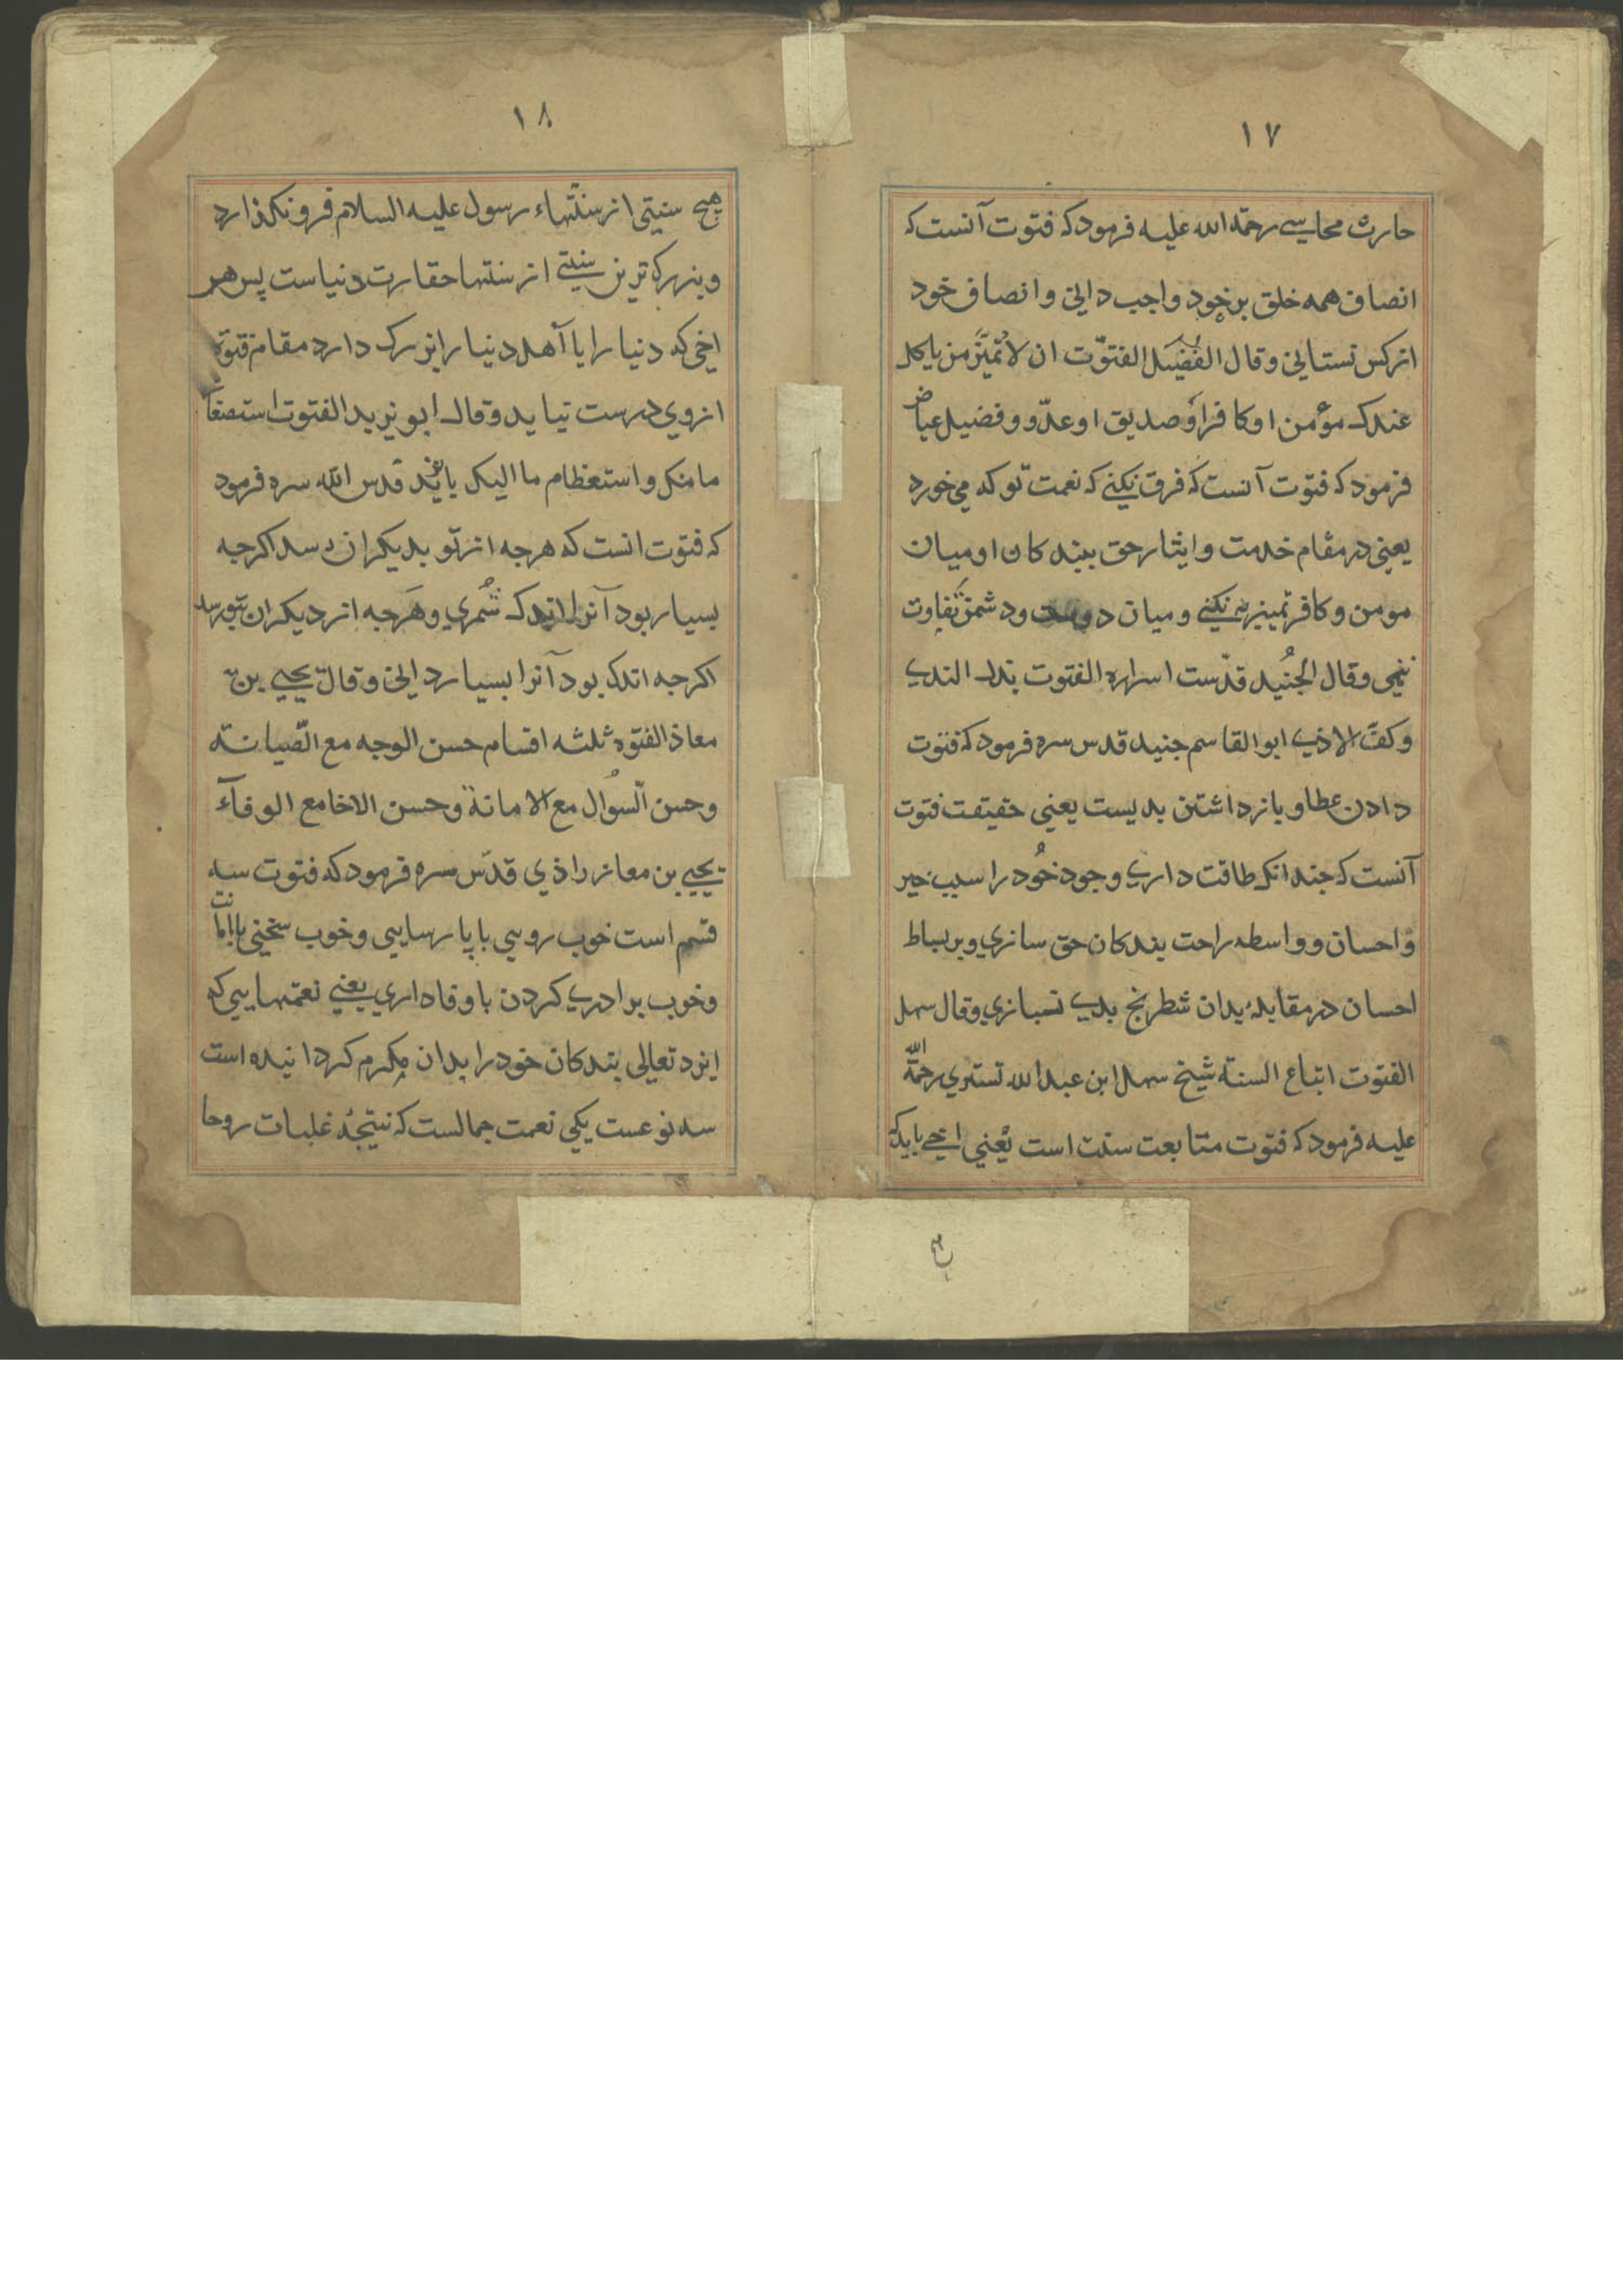 ١٧
حارث محاسبی رحمة الله علیه فرمود که فتوت آنست که
انصاف همه خلق بر خود واجب دانی و انصاف خود
از کس نستانی و قال الفضیل الفتوّت ان لا تمیّز من یاکل
عندک مؤمن او کافرا و صدیق او عدّو و فضیل عیاض
فرمود که فتوت آنست که فرق نکنی که نعمت تو که می خورد
یعنی در مقام خدمت و ایثار حق ببندکان او میان
مومن و کافر تمییز نکنی و میان دوست و دشمن تفاوت
ننهی و قال الجُنید قدّست اسراره الفتوت بذل الندی
و کفّ الاذی ابو القاسم جنید قدس سره فرمود که فتوت
دادن عطا و باز داشتن بدیست یعنی حقیقت فتوت
آنست که جندانک طاقت داری وجود خُود را سبب خیر
و احسان و واسطه راحت بندکان حق سازی و بر بساط
احسان در مقابلهٔ بدان شطرنج بدی نبازی و قال سهل
الفتوت اتباع السنة شیخ سهل ابن عبد الله تستری رحمة الله
علیه فرمود که فتوت متابعت سنت است یعنی اخی باید که
١٨
هیچ سنتی از سنّتهاء رسول علیه السلام فرو نکذارد
و بزرکترین سنتی از سنتها حقارت دنیاست پس هر
اخی که دنیا را یا اهل دنیا را بزرک دارد مقام فتوة
از وی درست نیاید و قال ابو یزید الفتوت استصغار
ما منک و استعظام ما الیک بایزید قدس الله سره فرمود
که فتوت انست که هرجه از تو بدیکران رسد اکرجه
بسیار بود آنرا اندک شُمری و هَرجه از دیکران بتو رسد
اکرجه اندک بود آنرا بسیار دانی و قال یحیی بن
معاذ الفتوه ثلثه اقسام حسن الوجه مع الصّیانة
و حسن السُّوال مع الامانة و حسن الاخا مع الوفآء
یحیی بن معاز راذی قدّس سره فرمود که فتوت سه
قسم است خوب رویی با پارسایی و خوب سخنی با امانت
و خوب برادری کردن با وفاداری یعنی نعمتهایی که
ایزد تعالی بندکان خود را بدان مکرم کردانیده است
سه نوعست یکی نعمت جمالست که نتیجهٔ غلبات روحا